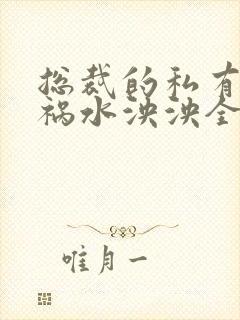 总裁的私有
祸水泱泱全
唯月一